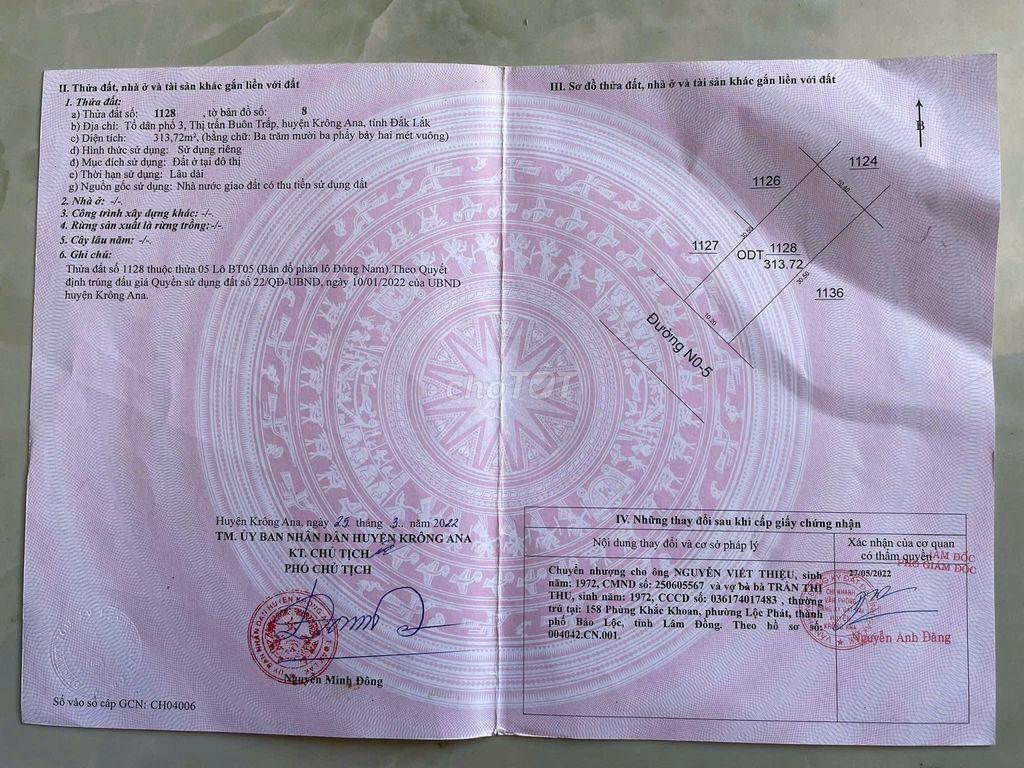 II. Thửa đất, nhà ở và tài sản khác gắn liền với đất
1. Thửa đất:
a) Thửa đất số: 1128 , tờ bản đồ số: 8
b) Địa chỉ: Tổ dân phố 3, Thị trấn Buôn Trấp, huyện Krông Ana, tỉnh Đắk Lắk
c) Diện tích: 313,72m², (bằng chữ: Ba trăm mười ba phẩy bảy hai mét vuông)
d) Hình thức sử dụng: Sử dụng riêng
đ) Mục đích sử dụng: Đất ở tại đô thị
e) Thời hạn sử dụng: Lâu dài
g) Nguồn gốc sử dụng: Nhà nước giao đất có thu tiền sử dụng đất
2. Nhà ở: -/-.
3. Công trình xây dựng khác: -/-.
4. Rừng sản xuất là rừng trồng:-/-.
5. Cây lâu năm: -/-.
6. Ghi chú:
Thửa đất số 1128 thuộc thửa 05 Lô BT05 (Bản đồ phân lô Đông Nam).Theo Quyết
định trúng đấu giá Quyền sử dụng đất số 22/QĐ-UBND, ngày 10/01/2022 của UBND
huyện Krông Ana.
Huyện Krông Ana, ngày 25 tháng 3.. năm 2022
TM. ỦY BAN NHÂN DÂN HUYỆN KRÔNG ANA
KT. CHỦ TỊCH
PHÓ CHỦ TỊCH
Nguyễn Minh Đông
Số vào sổ cấp GCN: CH04006
III. Sơ đồ thửa đất, nhà ở và tài sản khác gắn liền với đất
B
1124
1126
10.40
1127
30.50
ODT 1128
313.72
30.50
1136
10.20
Đường N0-5
chợTỐT
IV. Những thay đổi sau khi cấp giấy chứng nhận
Nội dung thay đổi và cơ sở pháp lý
Xác nhận của cơ quan
có thẩm quyền
Chuyển nhượng cho ông NGUYỄN VIẾT THIỆU, sinh
năm: 1972, CMND số: 250605567 và vợ bà bà TRẦN THỊ
THU, sinh năm: 1972, CCCD số: 036174017483 , thường
trú tại: 158 Phùng Khắc Khoan, phường Lộc Phát, thành
phố Bảo Lộc, tỉnh Lâm Đồng. Theo hồ sơ số:
004042.CN.001.
GIÁM ĐỐC
PHÓ GIÁM ĐỐC
27/05/2022
Nguyễn Anh Đăng